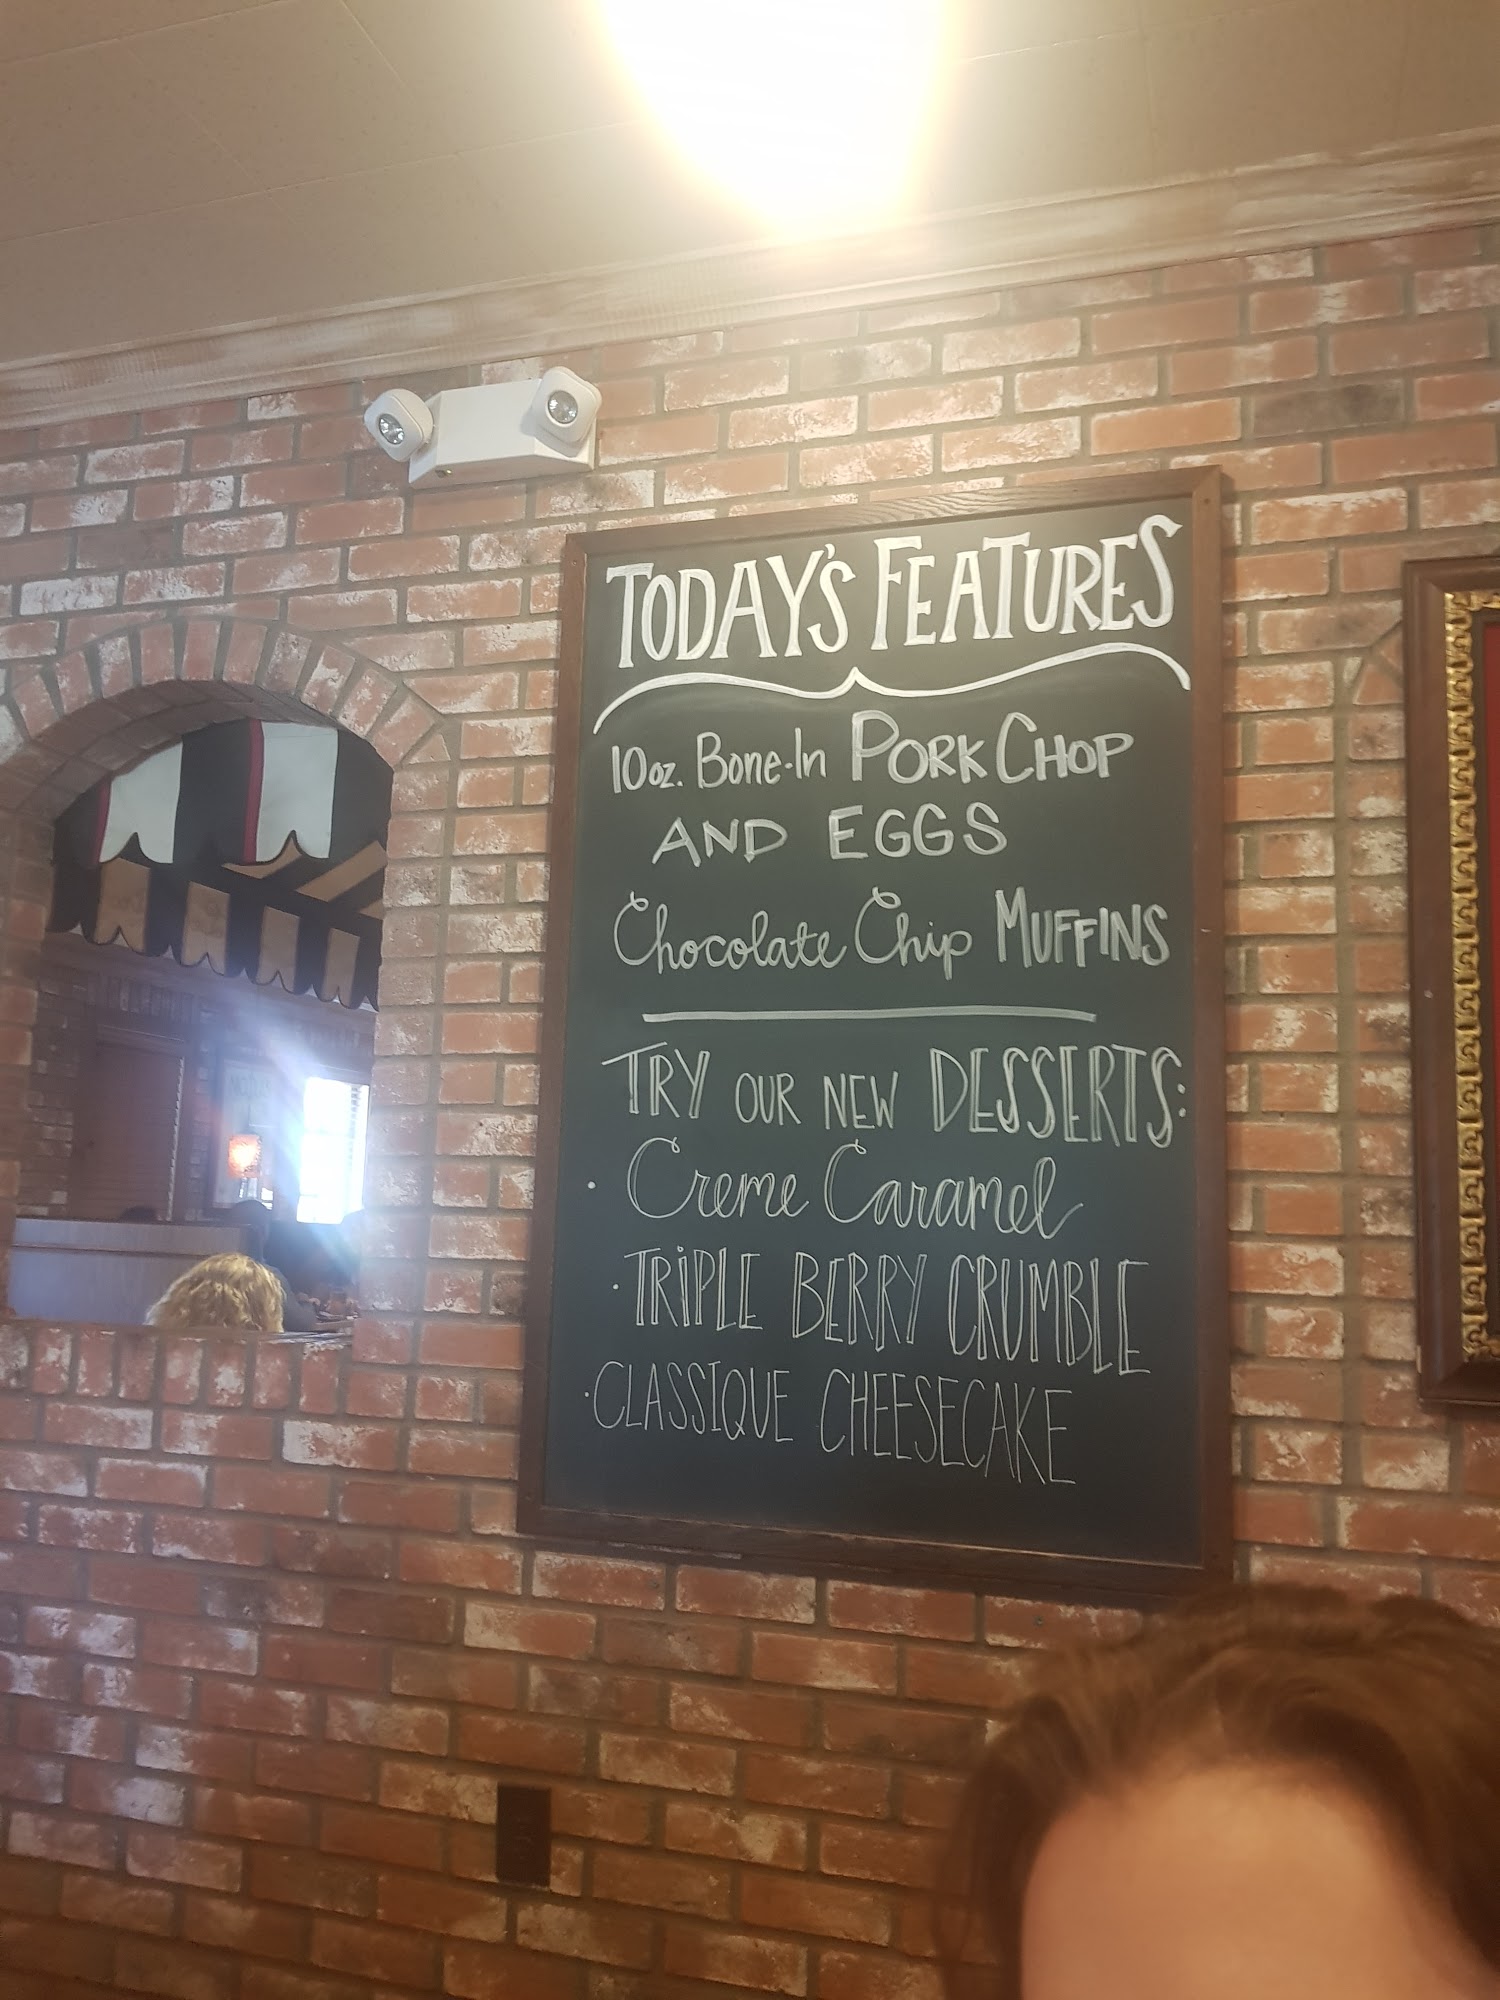 TODAY'S FEATURES
10 oz. Bone-In PORK CHOP
AND EGGS
Chocolate Chip MUFFINS
TRY OUR NEW DESSERTS:
· Creme Caramel
· TRiPLE BERRY CRUMBLE
· CLASSIQUE CHEESECAKE